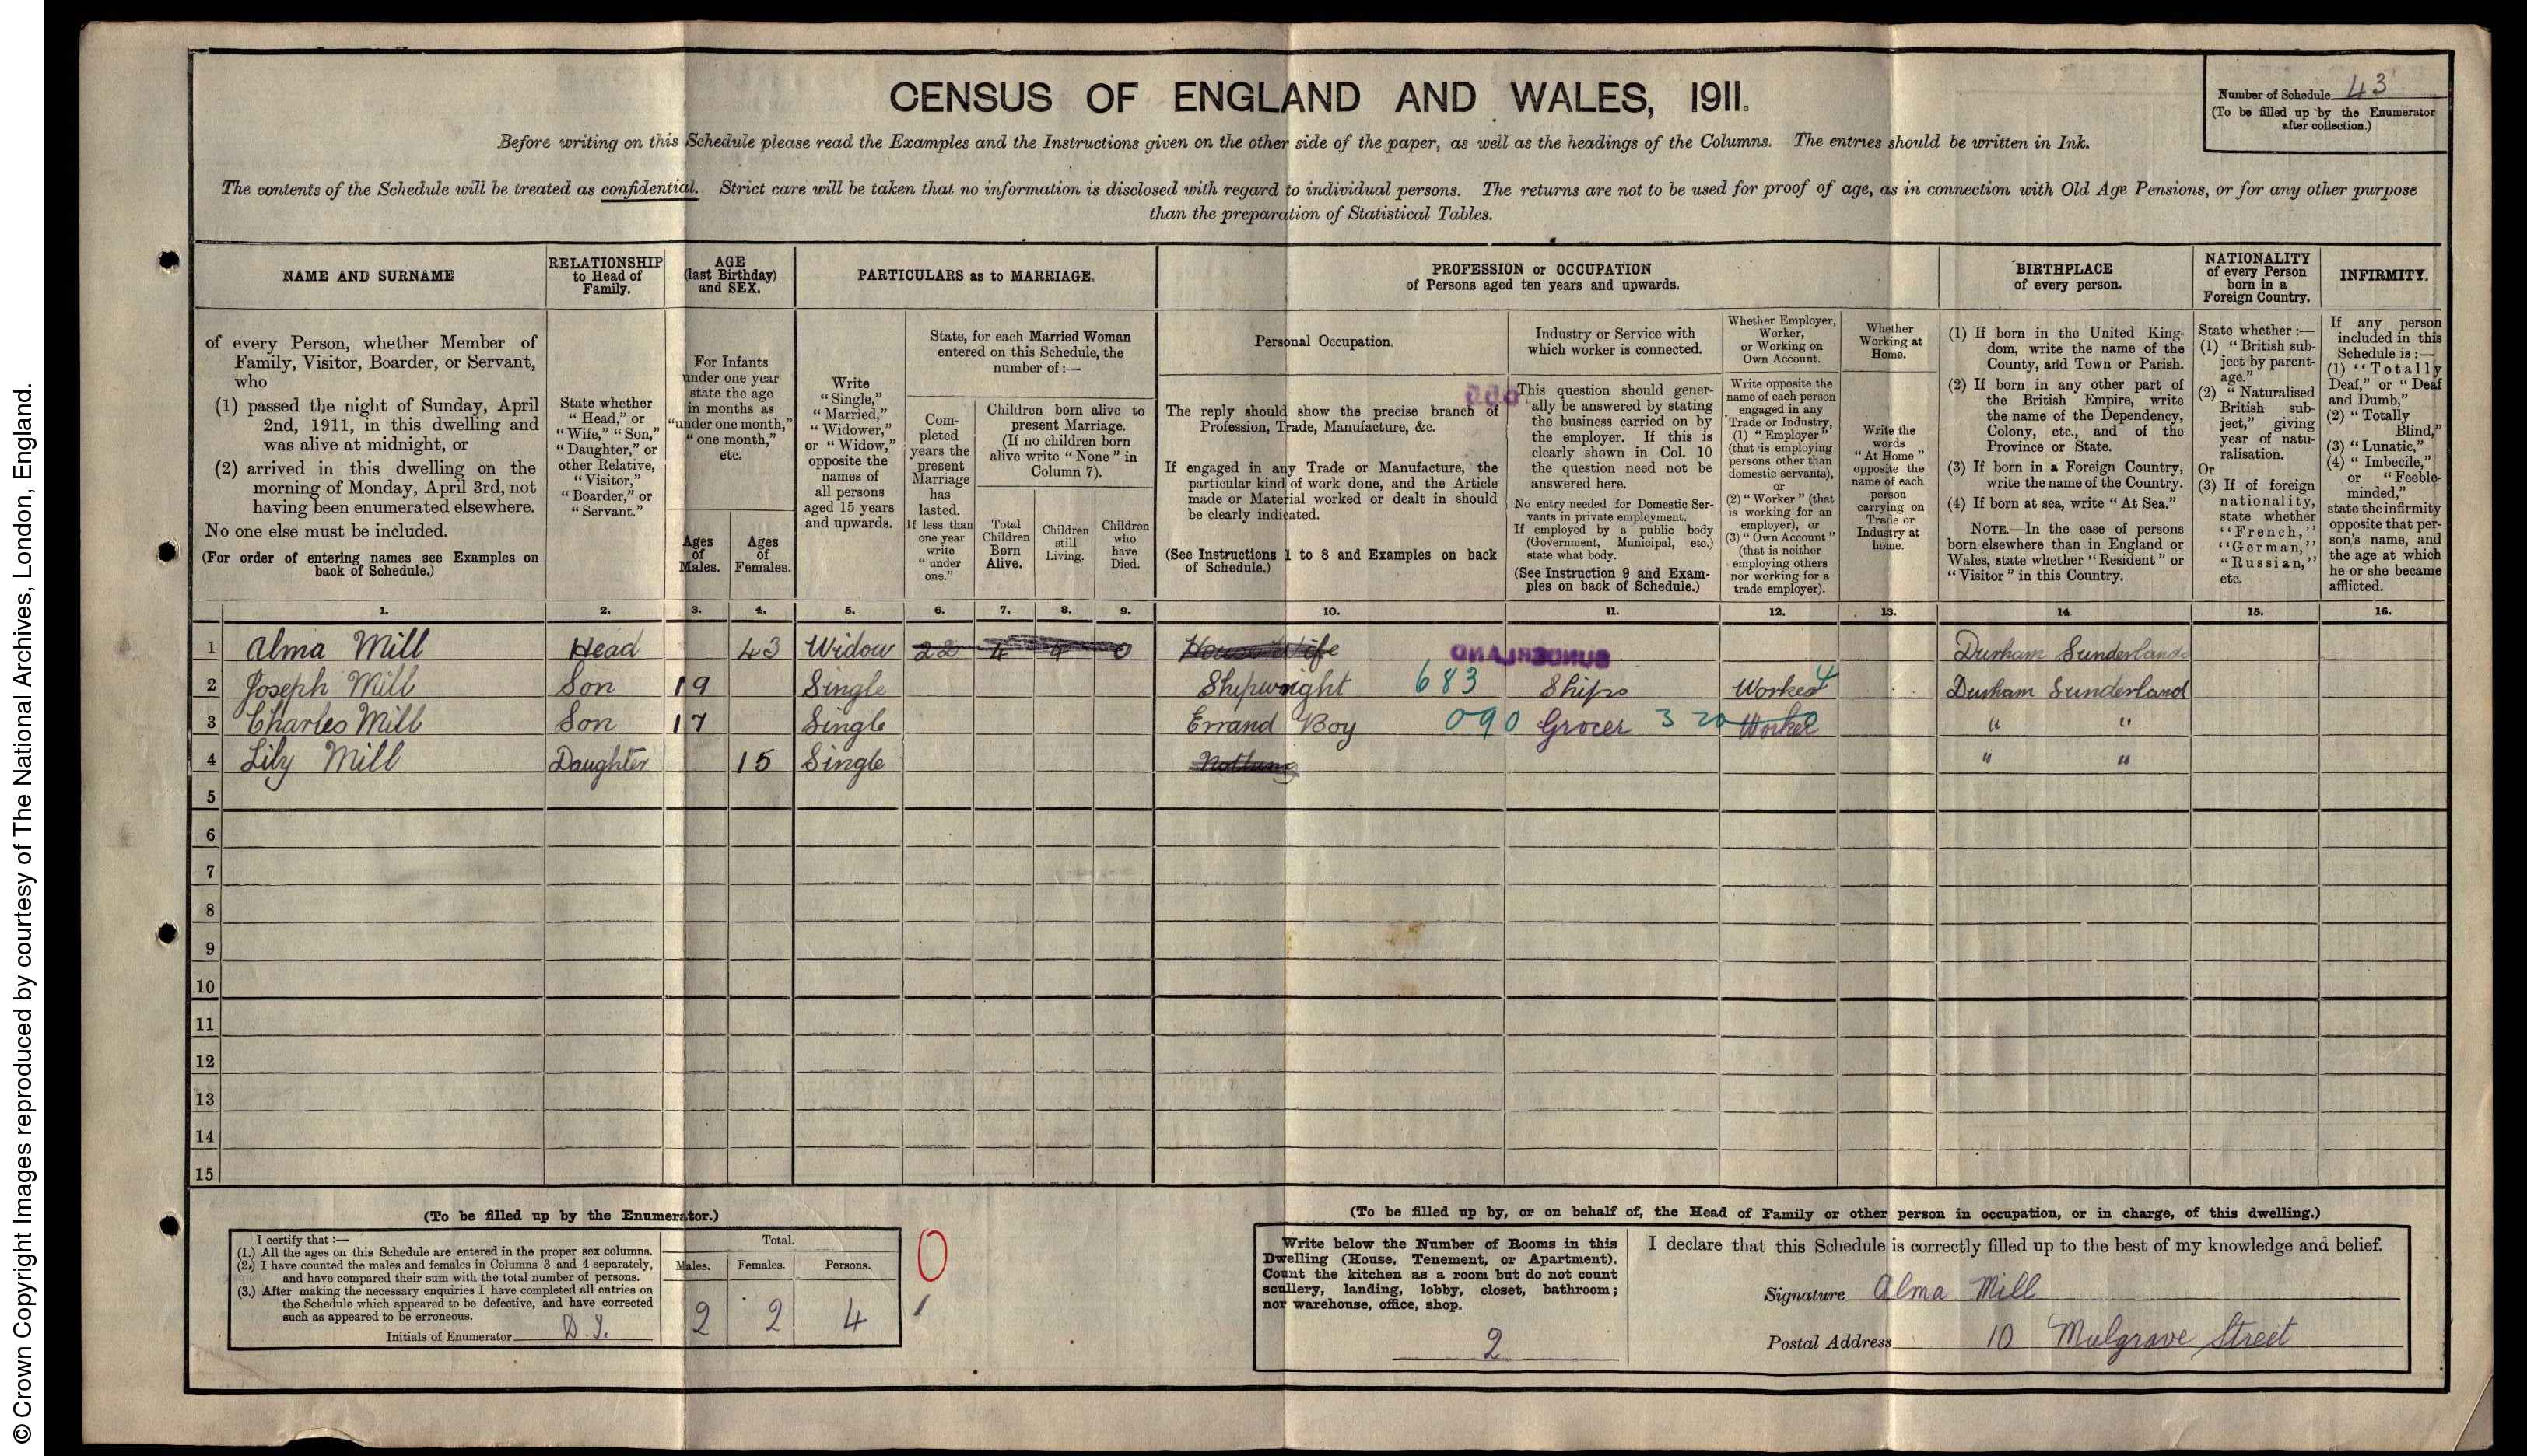 CENSUS OF ENGLAND AND WALES, 1911.
Number of Schedule 43
(To be filled up by the Enumerator
after collection.)
Before writing on this Schedule please read the Examples and the Instructions given on the other side of the paper, as well as the headings of the Columns. The entries should be written in Ink.
The contents of the Schedule will be treated as confidential. Strict care will be taken that no information is disclosed with regard to individual persons. The returns are not to be used for proof of age, as in connection with Old Age Pensions, or for any other purpose
than the preparation of Statistical Tables.
NAME AND SURNAME
of every Person, whether Member of
Family, Visitor, Boarder, or Servant,
who
(1) passed the night of Sunday, April
2nd, 1911, in this dwelling and
was alive at midnight, or
(2) arrived in this dwelling on the
morning of Monday, April 3rd, not
having been enumerated elsewhere.
No one else must be included.
(For order of entering names see Examples on
back of Schedule.)
RELATIONSHIP
to Head of
Family.
State whether
"Head," or
"Wife," "Son,"
"Daughter," or
other Relative,
"Visitor,"
"Boarder," or
"Servant."
AGE
(last Birthday)
and SEX.
For Infants
under one year
state the age
in months as
"under one month,"
"one month,"
etc.
Ages
of
Males.
Ages
of
Females.
PARTICULARS as to MARRIAGE.
Write
"Single,"
"Married,"
"Widower,"
or "Widow,"
opposite the
names of
all persons
aged 15 years
and upwards.
State, for each Married Woman
entered on this Schedule, the
number of:—
Com-
pleted
years the
present
Marriage
has
lasted.
If less than
one year
write
"under
one."
Children born alive to
present Marriage.
(If no children born
alive write "None" in
Column 7).
Total
Children
Born
Alive.
Children
still
Living.
Children
who
have
Died.
PROFESSION or OCCUPATION
of Persons aged ten years and upwards.
Personal Occupation.
The reply should show the precise branch of
Profession, Trade, Manufacture, &c.
If engaged in any Trade or Manufacture, the
particular kind of work done, and the Article
made or Material worked or dealt in should
be clearly indicated.
(See Instructions 1 to 8 and Examples on back
of Schedule.)
Industry or Service with
which worker is connected.
This question should gener-
ally be answered by stating
the business carried on by
the employer. If this is
clearly shown in Col. 10
the question need not be
answered here.
No entry needed for Domestic Ser-
vants in private employment.
If employed by a public body
(Government, Municipal, etc.)
state what body.
(See Instruction 9 and Exam-
ples on back of Schedule.)
Whether Employer,
Worker,
or Working on
Own Account.
Write opposite the
name of each person
engaged in any
Trade or Industry,
(1) "Employer"
(that is employing
persons other than
domestic servants),
or
(2) "Worker" (that
is working for an
employer), or
(3) "Own Account"
(that is neither
employing others
nor working for a
trade employer).
Whether
Working at
Home.
Write the
words
"At Home"
opposite the
name of each
person
carrying on
Trade or
Industry at
home.
BIRTHPLACE
of every person.
(1) If born in the United King-
dom, write the name of the
County, and Town or Parish.
(2) If born in any other part of
the British Empire, write
the name of the Dependency,
Colony, etc., and of the
Province or State.
(3) If born in a Foreign Country,
write the name of the Country.
(4) If born at sea, write "At Sea."
NOTE.—In the case of persons
born elsewhere than in England or
Wales, state whether "Resident" or
"Visitor" in this Country.
NATIONALITY
of every Person
born in a
Foreign Country.
State whether:—
(1) "British sub-
ject by parent-
age."
(2) "Naturalised
British sub-
ject," giving
year of natu-
ralisation.
Or
(3) If of foreign
nationality,
state whether
"French,"
"German,"
"Russian,"
etc.
INFIRMITY.
If any person
included in this
Schedule is:—
(1) "Totally
Deaf," or "Deaf
and Dumb,"
(2) "Totally
Blind,"
(3) "Lunatic,"
(4) "Imbecile,"
or "Feeble-
minded,"
state the infirmity
opposite that per-
son's name, and
the age at which
he or she became
afflicted.
1. 2. 3. 4. 5. 6. 7. 8. 9. 10. 11. 12. 13. 14. 15. 16.
SUNDERLAND
1 Alma Mill Head 43 Widow 22 4 4 0 House Wife Durham Sunderland
2 Joseph Mill Son 19 Single Shipwright 683 Ships Worker 4 Durham Sunderland
3 Charles Mill Son 17 Single Errand Boy 090 Grocer 3 20 Worker " "
4 Lily Mill Daughter 15 Single Nothing " "
5
6
7
8
9
10
11
12
13
14
15
(To be filled up by the Enumerator.)
I certify that:—
(1.) All the ages on this Schedule are entered in the proper sex columns.
(2.) I have counted the males and females in Columns 3 and 4 separately,
and have compared their sum with the total number of persons.
(3.) After making the necessary enquiries I have completed all entries on
the Schedule which appeared to be defective, and have corrected
such as appeared to be erroneous.
Initials of Enumerator
Total.
Males. Females. Persons.
2 2 4
0
(To be filled up by, or on behalf of, the Head of Family or other person in occupation, or in charge, of this dwelling.)
Write below the Number of Rooms in this
Dwelling (House, Tenement, or Apartment).
Count the kitchen as a room but do not count
scullery, landing, lobby, closet, bathroom;
nor warehouse, office, shop.
2
I declare that this Schedule is correctly filled up to the best of my knowledge and belief.
Signature Alma Mill
Postal Address 10 Mulgrave Street
© Crown Copyright Images reproduced by courtesy of The National Archives, London, England.